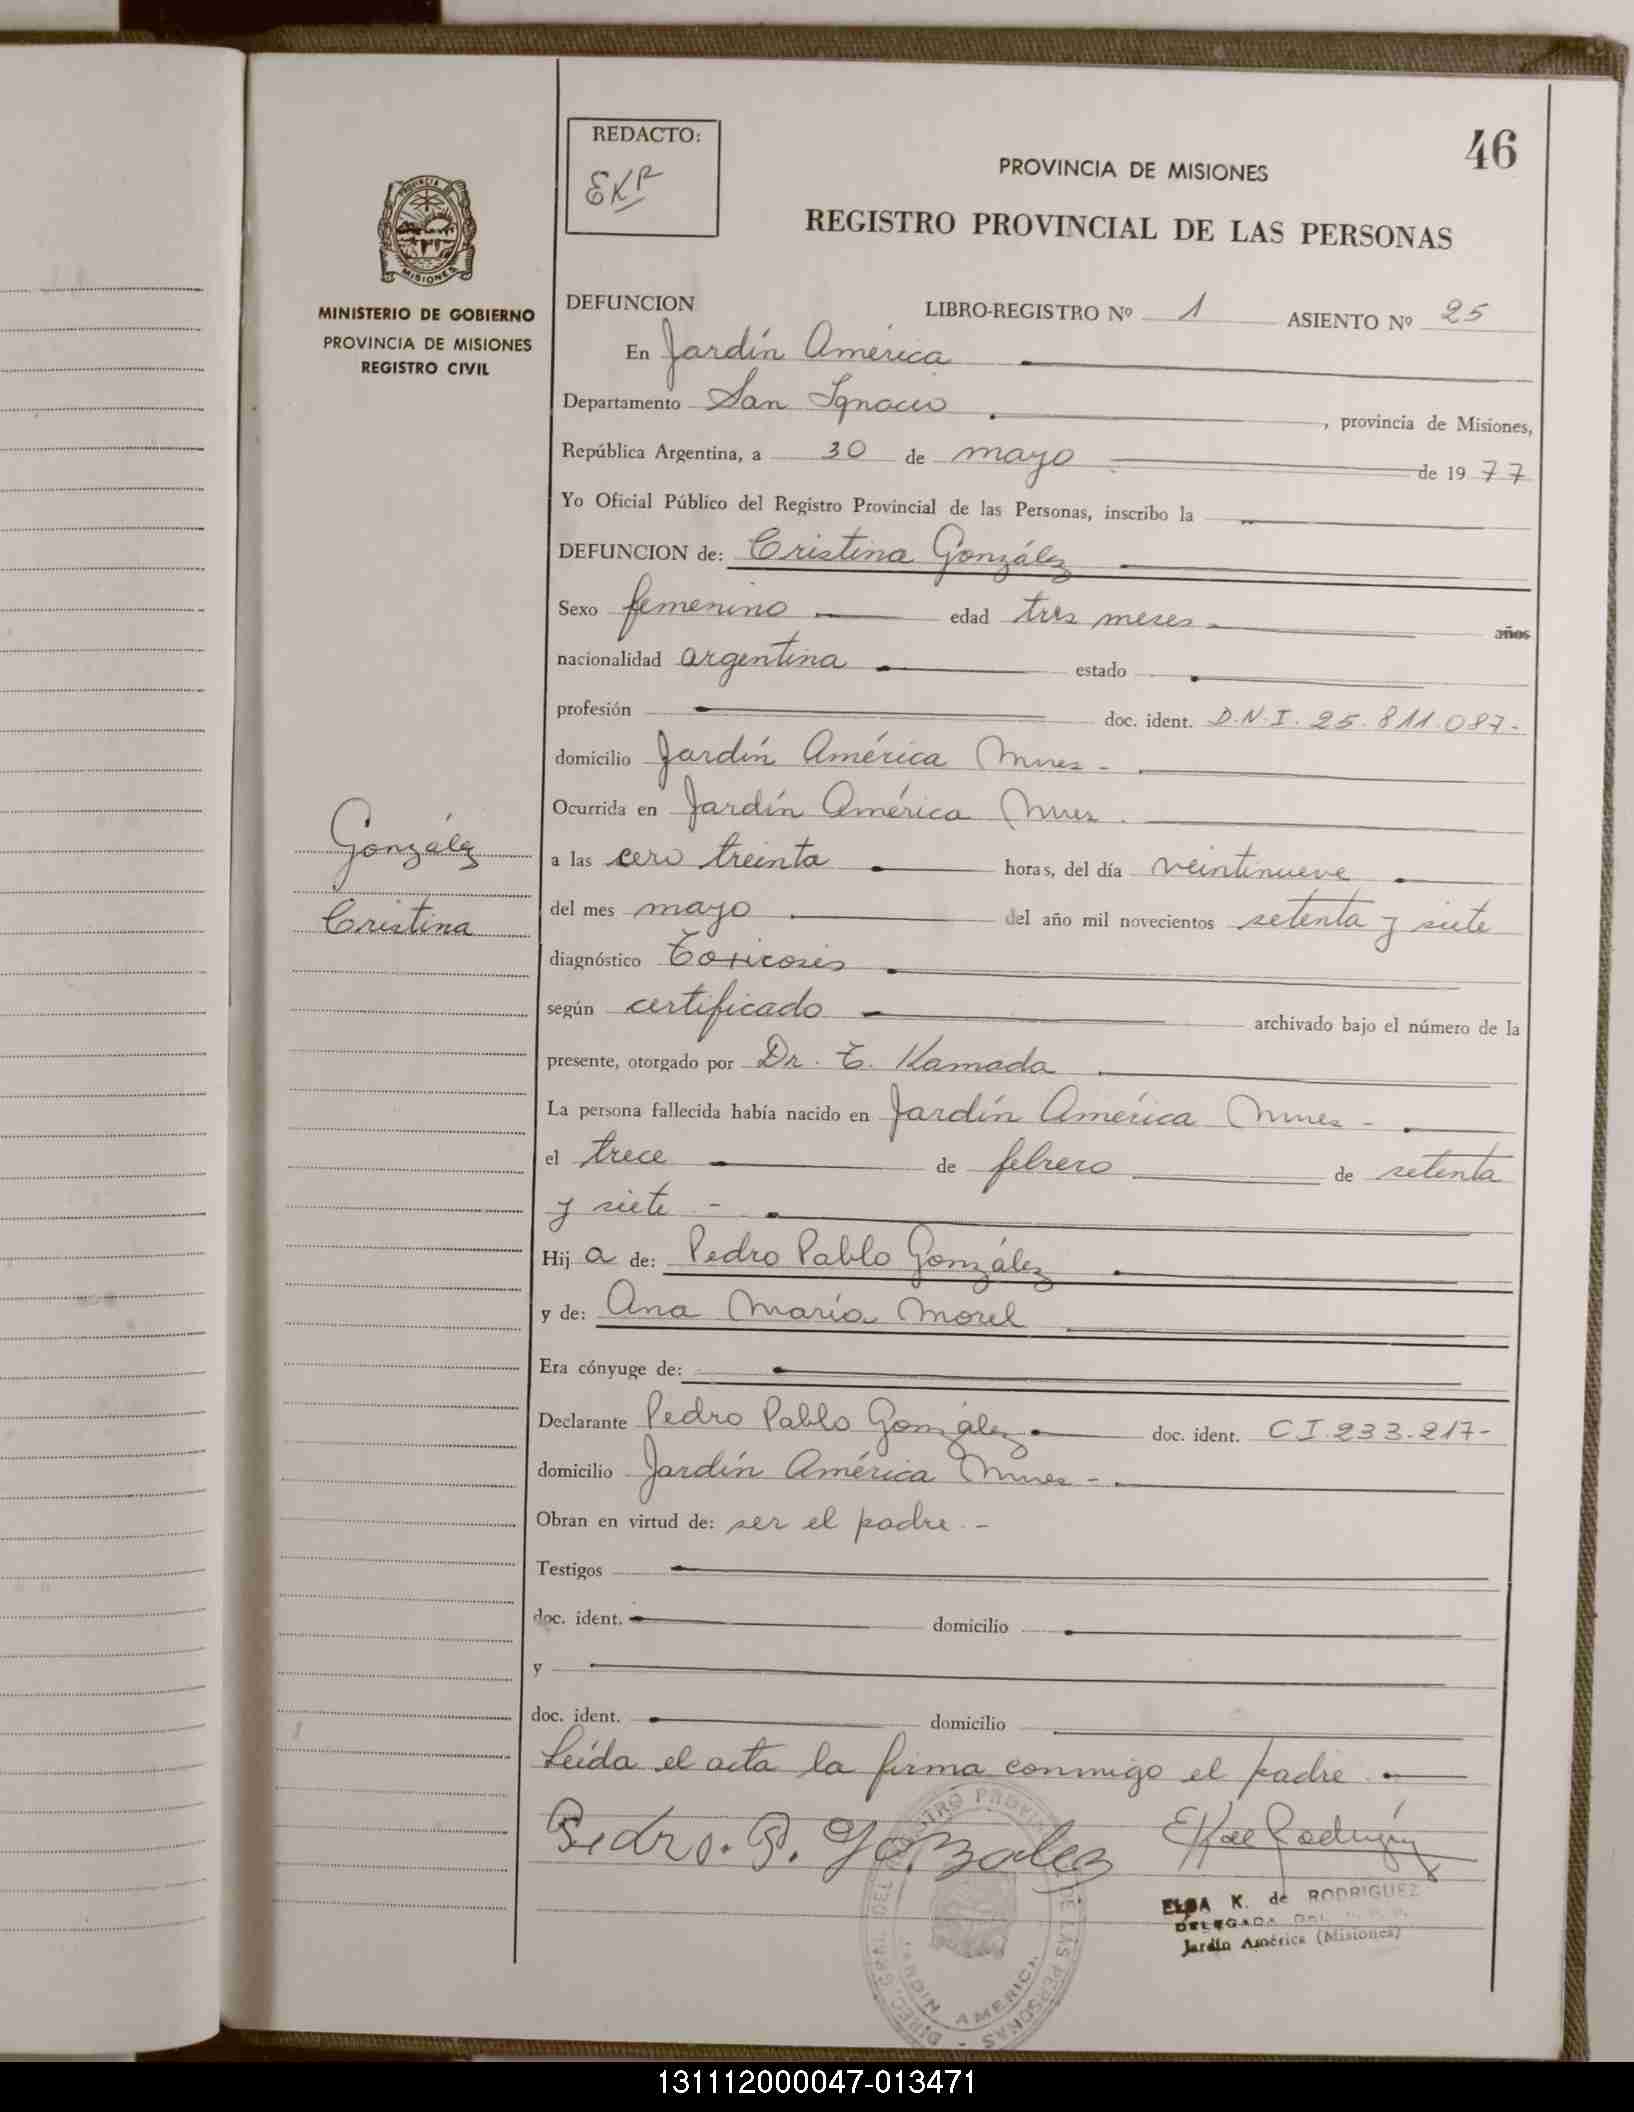 46
REDACTO:
EKR
PROVINCIA DE MISIONES
REGISTRO PROVINCIAL DE LAS PERSONAS
PROVINCIA DE
MISIONES
MINISTERIO DE GOBIERNO
PROVINCIA DE MISIONES
REGISTRO CIVIL
DEFUNCION LIBRO-REGISTRO Nº 1 ASIENTO Nº 25
En Jardín América
Departamento San Ignacio, provincia de Misiones,
República Argentina, a 30 de mayo de 1977
Yo Oficial Público del Registro Provincial de las Personas, inscribo la
DEFUNCION de: Cristina González
Sexo femenino edad tres meses años
nacionalidad argentina estado
profesión doc. ident. D.N.I. 25.811.087-
domicilio Jardín América Mnes-
Ocurrida en Jardín América Mnes.
González
a las cero treinta horas, del día veintinueve
Cristina
del mes mayo del año mil novecientos setenta y siete
diagnóstico Toxicosis
según certificado archivado bajo el número de la
presente, otorgado por Dr. T. Kamada
La persona fallecida había nacido en Jardín América Mnes-
el trece de febrero de setenta
y siete -
Hija de: Pedro Pablo González
y de: Ana María Morel
Era cónyuge de:
Declarante Pedro Pablo González doc. ident. CI.233.217-
domicilio Jardín América Mnes-
Obran en virtud de: ser el padre.-
Testigos
doc. ident. domicilio
y
doc. ident. domicilio
Leída el acta la firma conmigo el padre.
Pedro. P. Gonzalez
EK de Rodríguez
ELBA K. de RODRIGUEZ
DELEGADA DEL R. P. P.
Jardín América (Misiones)
DIREC. GRAL. DEL REGISTRO PROVINCIAL DE LAS PERSONAS -
JARDIN AMERICA
131112000047-013471